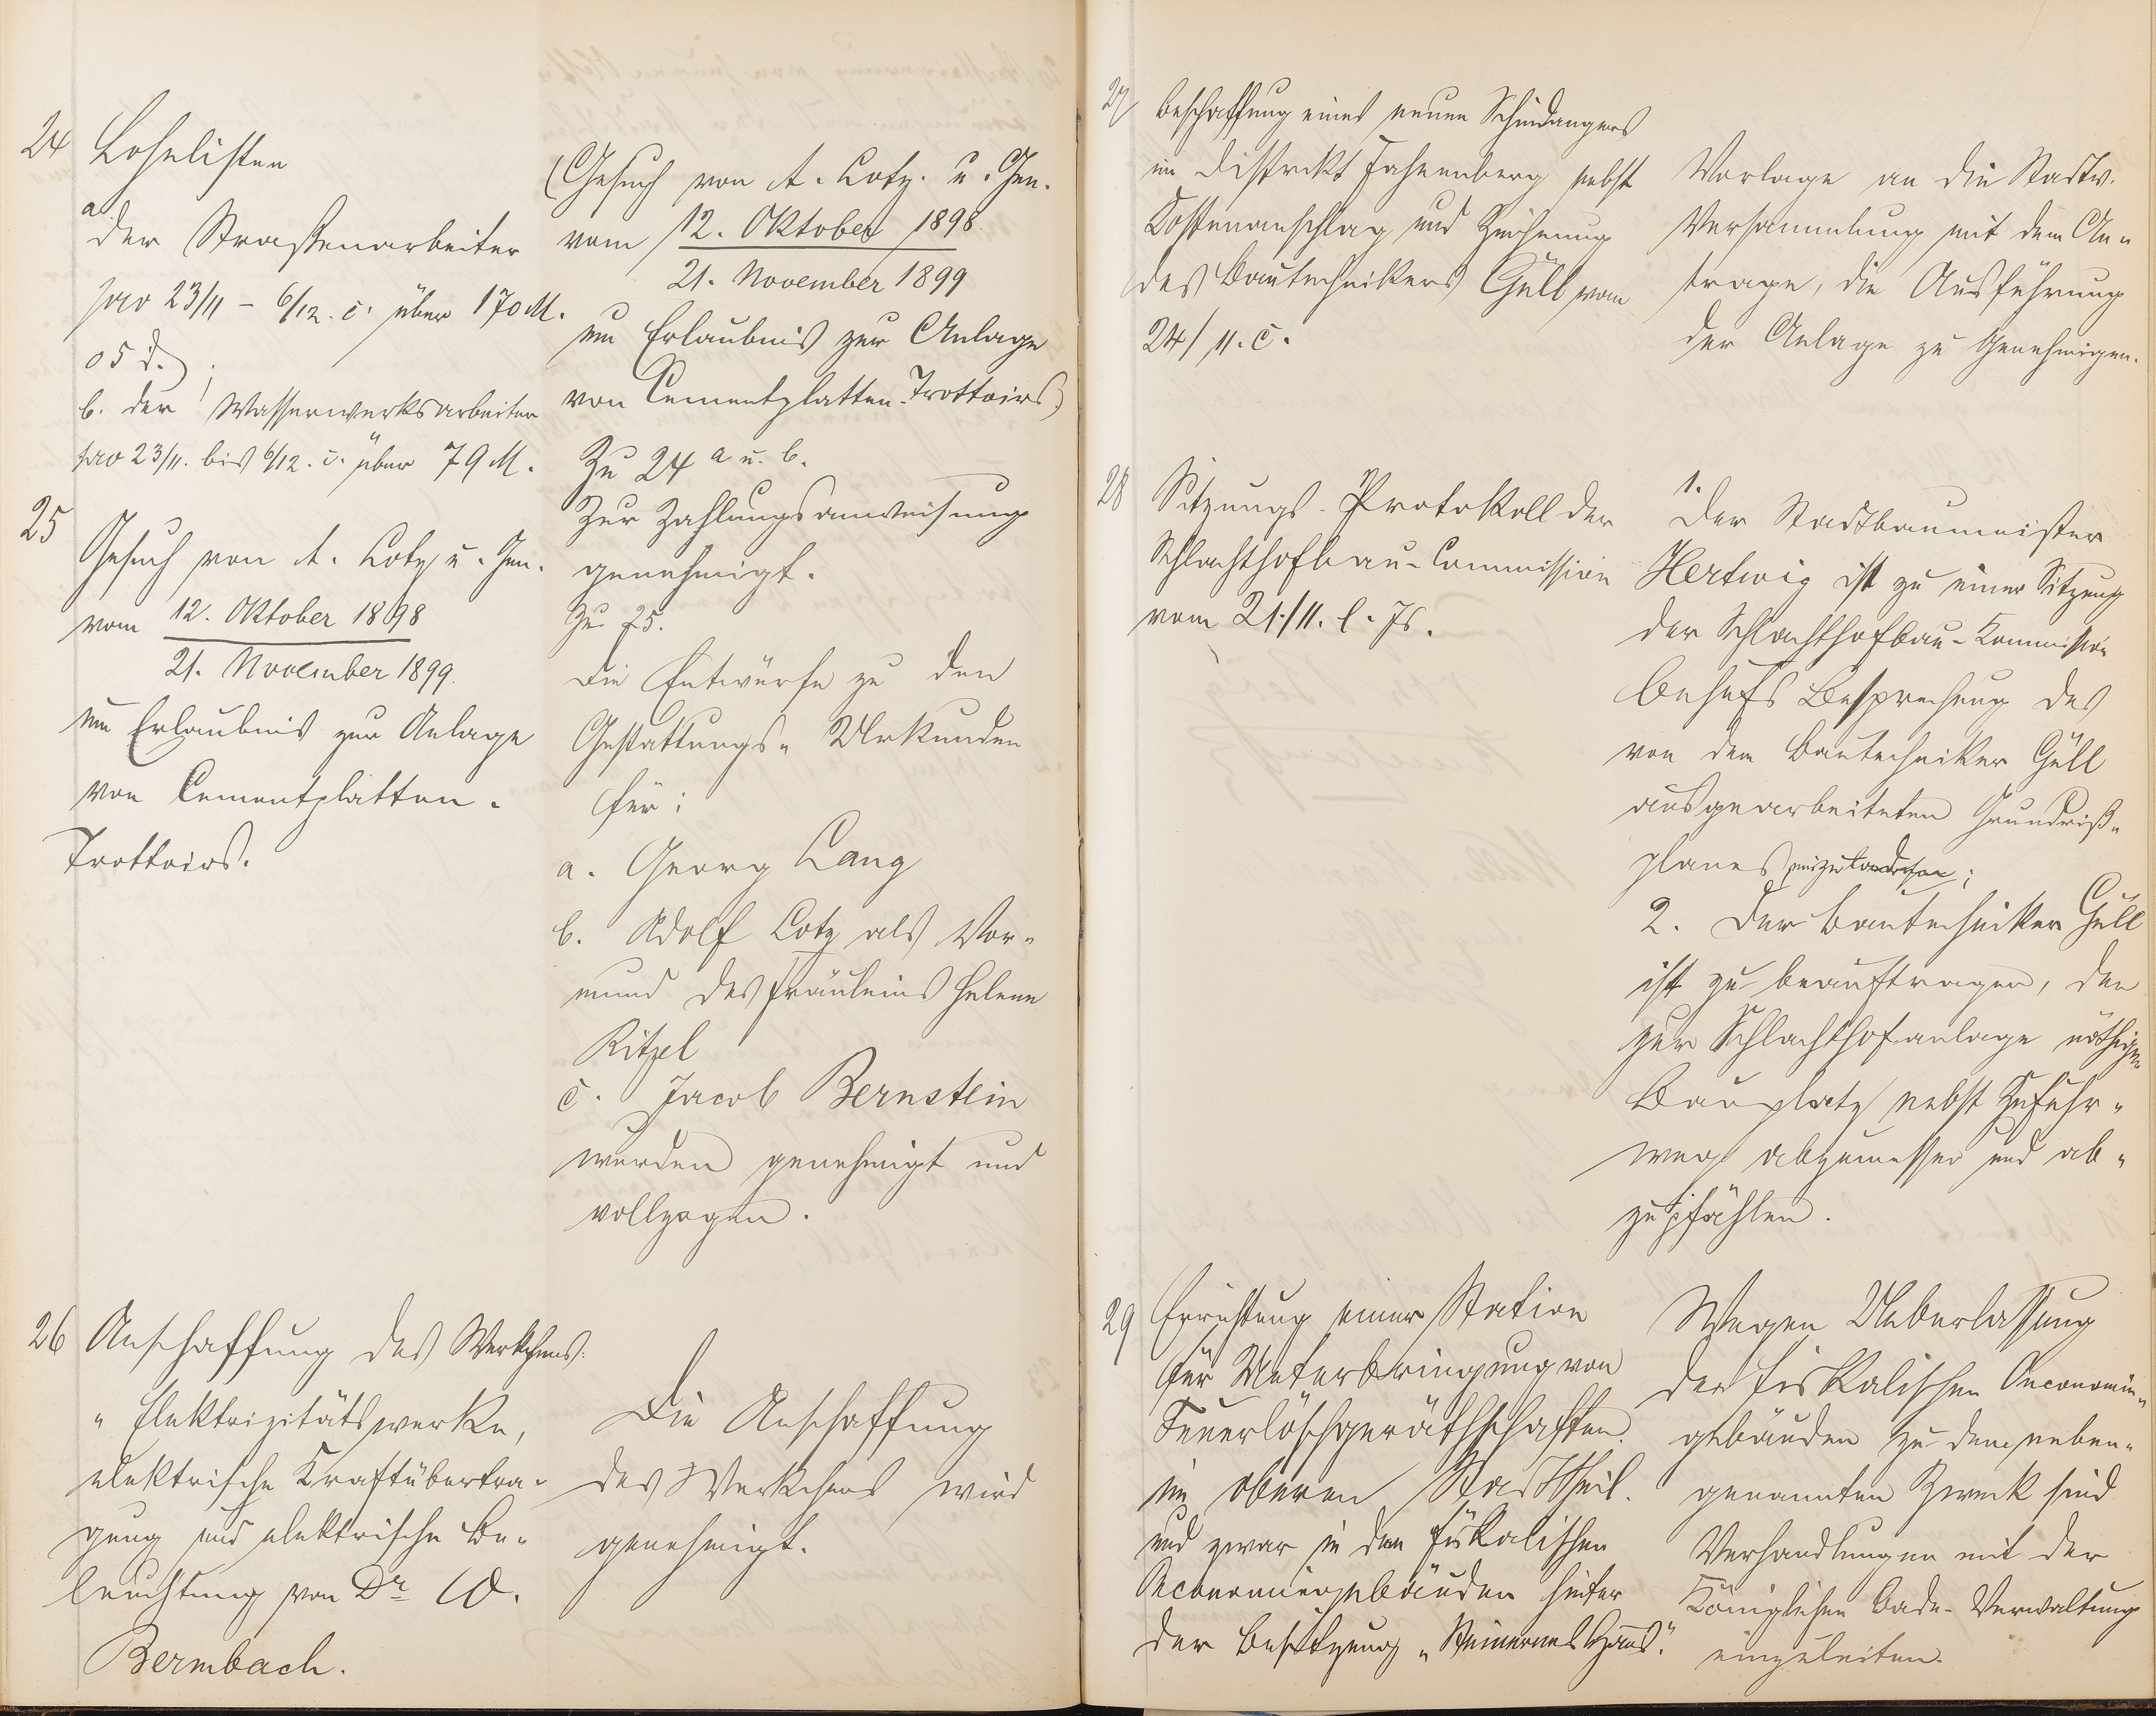 24 Lohnlisten
a
der Strassenarbeiter
pro 23/11 - 6/12. c. über 170 M.
05 d.
b. der Wasserwerksarbeiter
pro 23/11. bis 6/12. c. über 79 M.
25
Gesuch von A. Lotz u. Gen.
vom 12. Oktober 1898
21. November 1899.
um Erlaubnis zur Anlage
von Cementplatten-
Trottoirs.
26 Anschaffung des Werkchens.
"Elektrizitätswerke,
elektrische Kraftübertra-
gung und elektrische Be-
leuchtung von Dr W.
Bermbach.
(Gesuch von A. Lotz. u. Gen.
vom 12. Oktober 1898.
21. November 1899
um Erlaubnis zur Anlage
von Cementplatten-Trottoirs)
Zu 24 a u. b.
Zur Zahlungsanweisung
genehmigt.
Zu 25.
Die Entwürfe zu den
Gestattungs-Urkunden
für:
a. Georg Lang
b. Adolf Lotz als Vor-
mund des Fräuleins Helene
Ritzel
c. Jacob Bernstein
wurden genehmigt und
vollzogen.
Die Anschaffung
des Werkchens wird
genehmigt.
27 Beschaffung eines neuen Schindangers
im Distrikt Fahrenberg nebst
Kostenanschlag und Zeichnung
des Bautechnikers Güll vom
24/11. c.
Vorlage an die Stadtv.
Versammlung mit dem An-
trage, die Ausführung
der Anlage zu genehmigen.
28 Sitzungs-Protokoll der
Schlachthofbau-Commission
vom 21./11. l. Js.
1.
Der Stadtbaumeister
Hertwig ist zu einer Sitzung
der Schlachthofbau-Kommission
behufs Besprechung des
von dem Bautechniker Güll
ausgearbeiteten Grundriß-
planes einzuladen;
2. Der Bautechniker Güll
ist zu beauftragen, den
zur Schlachthofanlage nöthigen
Bauplatz nebst Zufuhr-
weg abzumessen und ab-
zupfählen.
29 Errichtung einer Station
für Unterbringung von
Feuerlöschgeräthschaften
im oberen Stadttheil
und zwar in den fiskalischen
Oeconomiegebäuden hinter
der Besitzung "Steinernes Haus".
Wegen Ueberlassung
der fiskalischen Oeconomie-
gebäuden zu dem neben-
genannten Zweck sind
Verhandlungen mit der
Königlichen Bade-Verwaltung
einzuleiten.